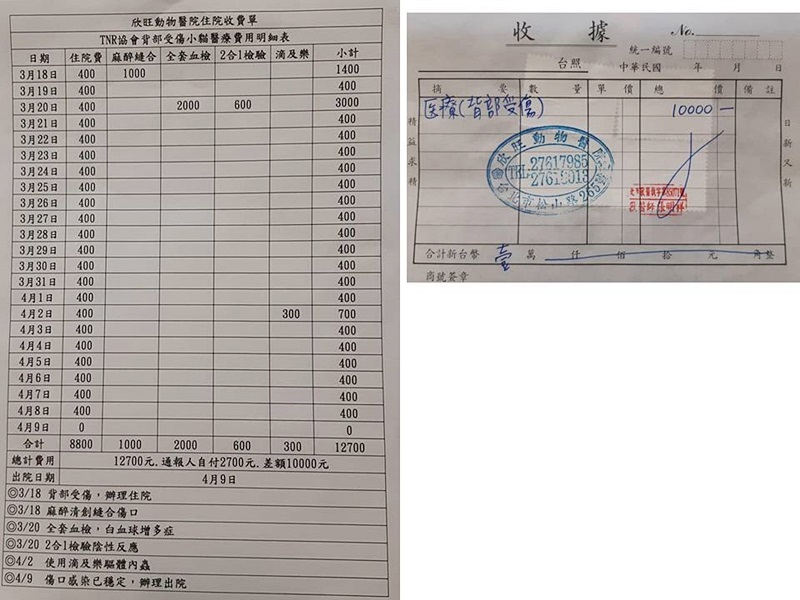 欣旺動物醫院住院收費單
TNR協會背部受傷小貓醫療費用明細表
日期 住院費 麻醉縫合 全套血檢 2合1檢驗 滴及樂 小計
3月18日 400 1000 1400
3月19日 400 400
3月20日 400 2000 600 3000
3月21日 400 400
3月22日 400 400
3月23日 400 400
3月24日 400 400
3月25日 400 400
3月26日 400 400
3月27日 400 400
3月28日 400 400
3月29日 400 400
3月30日 400 400
3月31日 400 400
4月1日 400 400
4月2日 400 300 700
4月3日 400 400
4月4日 400 400
4月5日 400 400
4月6日 400 400
4月7日 400 400
4月8日 400 400
4月9日 0 0
合計 8800 1000 2000 600 300 12700
總計費用 12700元.通報人自付2700元.差額10000元
出院日期 4月9日
◎3/18 背部受傷，辦理住院
◎3/18 麻醉清創縫合傷口
◎3/20 全套血檢，白血球增多症
◎3/20 2合1檢驗陰性反應
◎4/2 使用滴及樂驅體內蟲
◎4/9 傷口感染已穩定，辦理出院
收 據 No.
統一編號
台照 中華民國 年 月 日
摘 要 數 量 單 價 總 價 備 註
医療(背部受傷) 10000 —
精益求精
日新又新
欣旺動物醫院
TEL:27617985
台北市松山路265號
合計新台幣 壹 萬 仟 佰 拾 元 角整
商號簽章